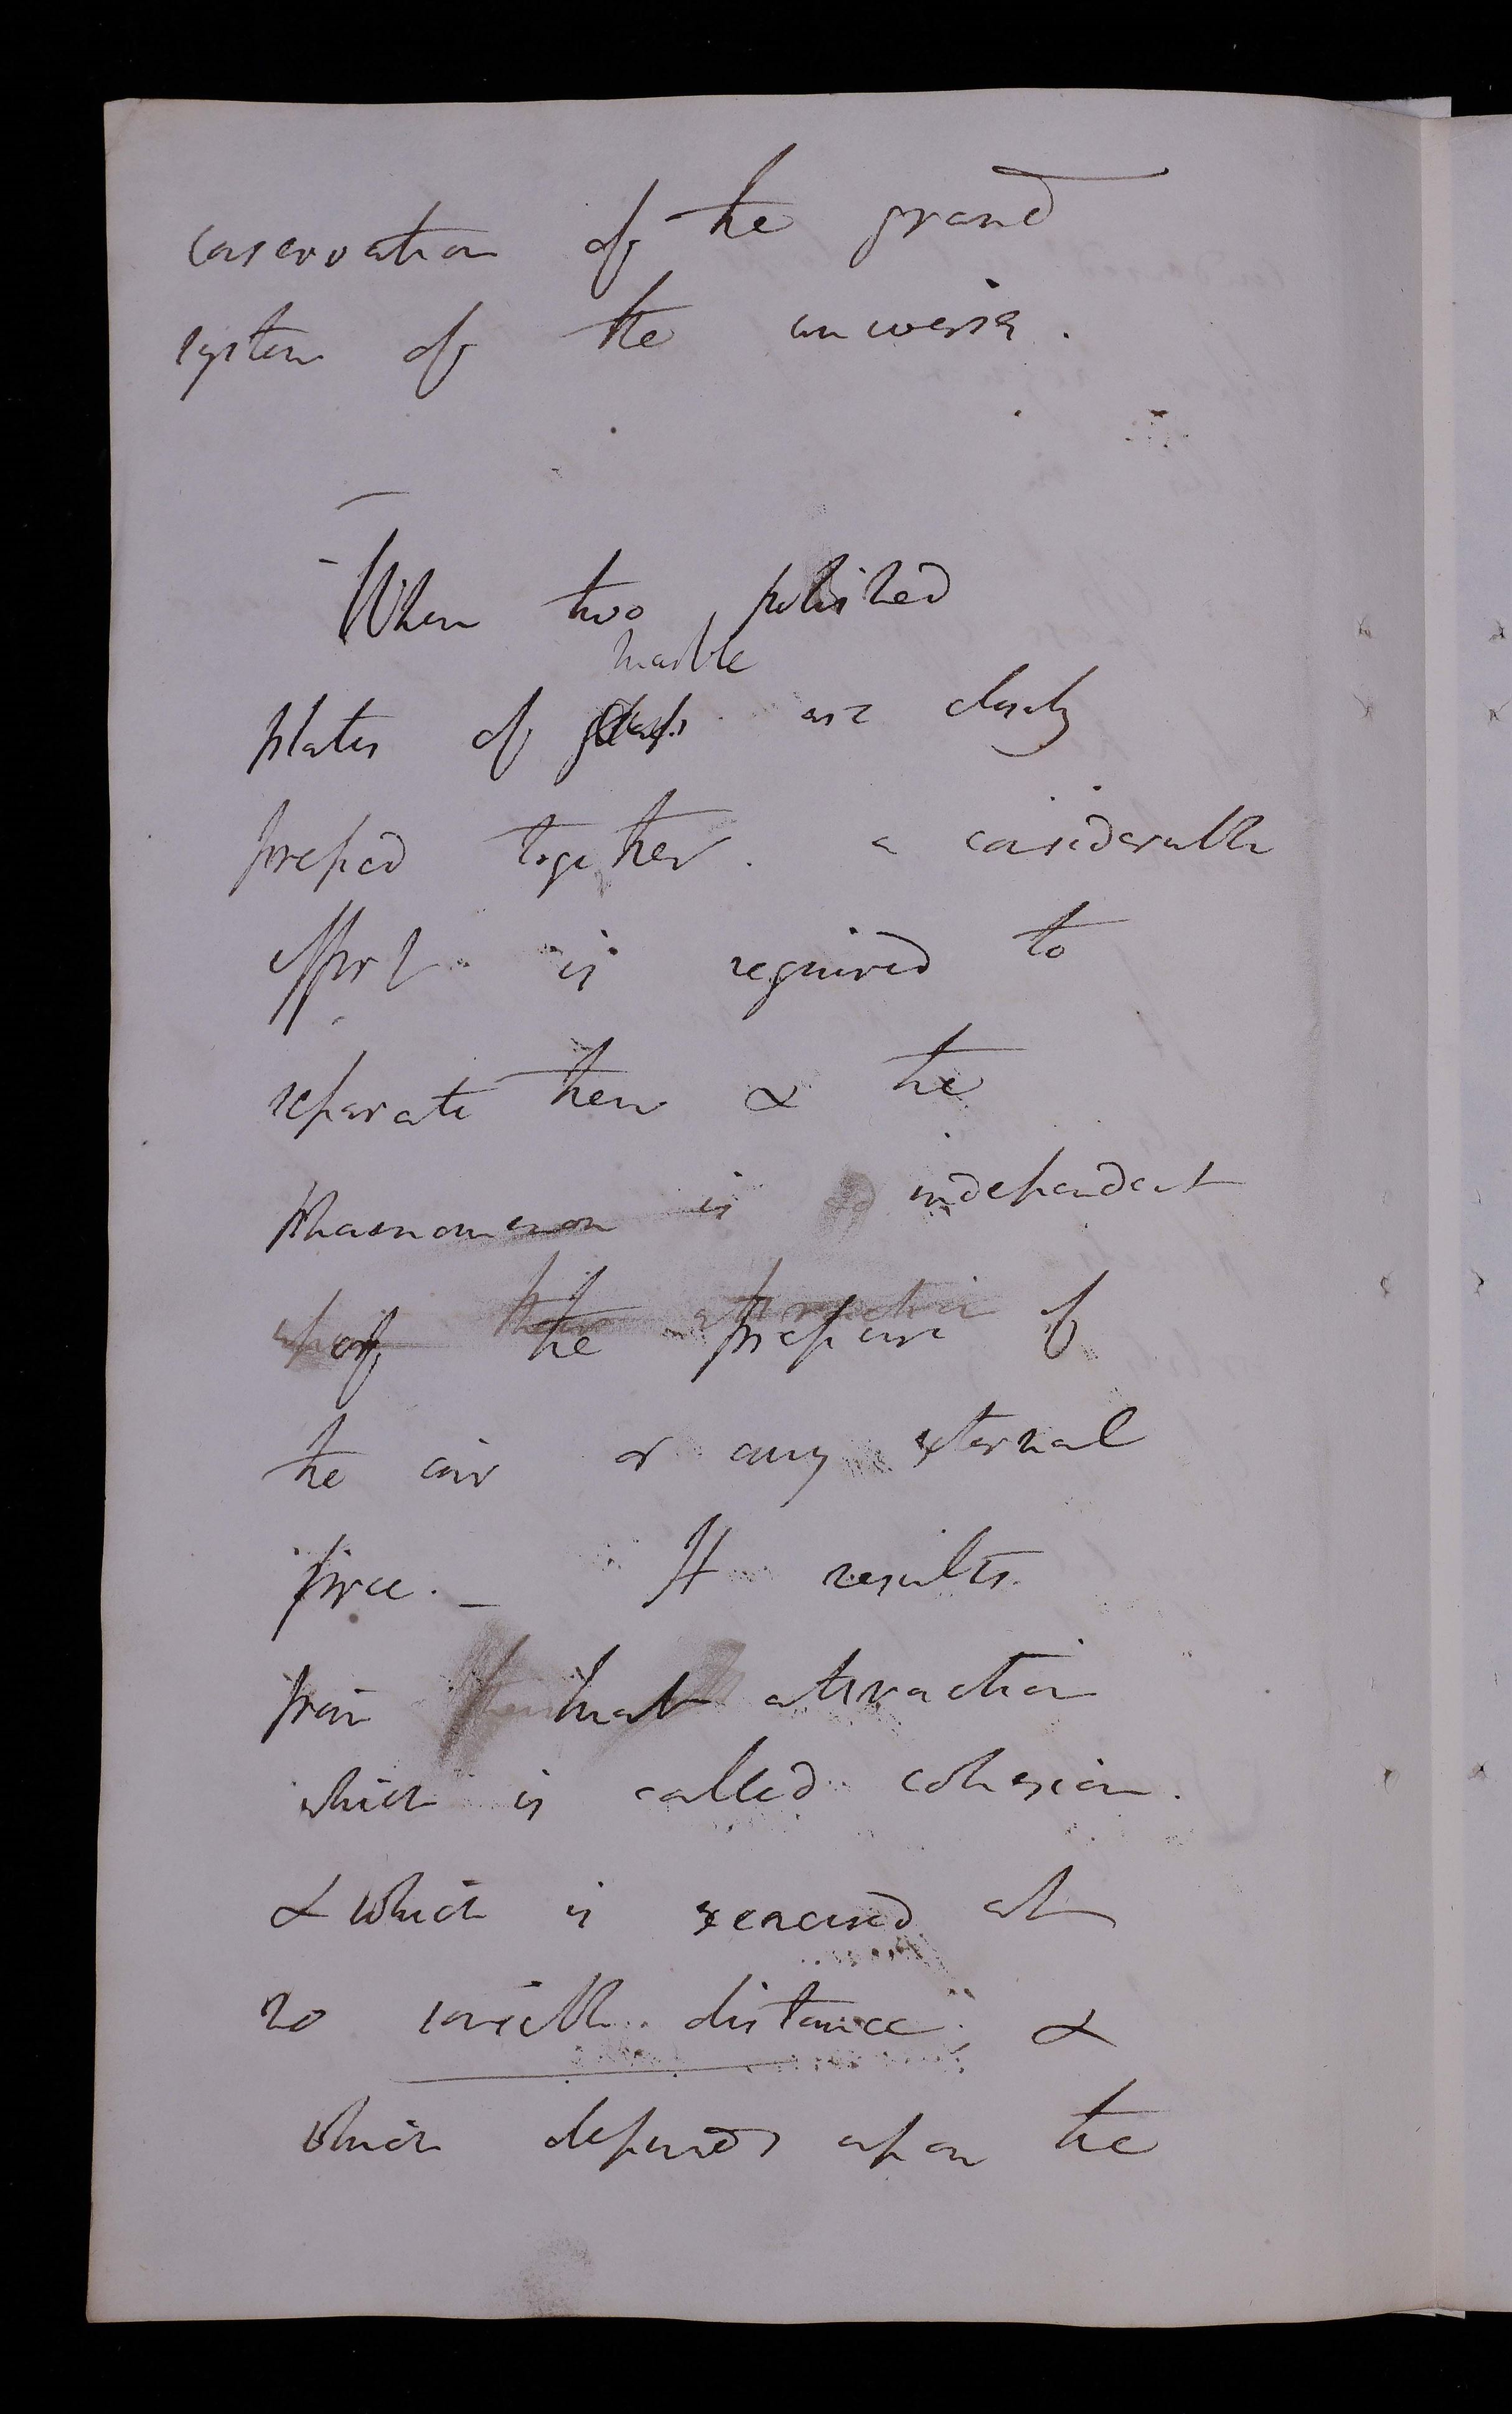 conservation of the grand
system of the universe.
When two polished
marble
plates of glass are closely
pressed together. a considerable
effort is required to
separate them & the
Phaenomenon is independent
of the pressure of
the air or any external
force. _ It results.
from that attraction
which is called cohesion.
& which is exercised at
no sensible distance; &
which depends upon the